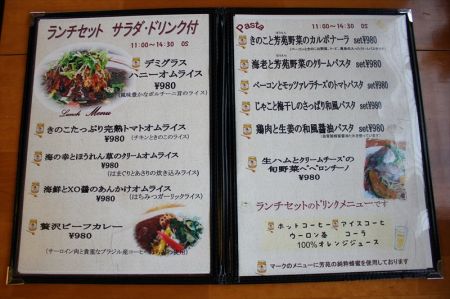 ランチセット サラダ・ドリンク付
11:00～14:30 OS
デミグラス
ハニーオムライス
¥980
(風味豊かなポルチーニ茸のライス)
Lunch Menu
きのこたっぷり完熟トマトオムライス
¥980 (チキンときのこのライス)
海の幸とほうれん草のクリームオムライス
¥980 (はまぐりとあさりの炊き込みライス)
海鮮とXO醬のあんかけオムライス
¥980 (はちみつガーリックライス)
贅沢ビーフカレー
¥980
(サーロイン肉と貴重なブラジル産コーヒー
使用)
Pasta
11:00～14:30 OS
きのこと芳苑野菜のカルボナーラ set¥980
海老と芳苑野菜のクリームパスタ set¥980
ベーコンとモッツァレラチーズのトマトパスタ
set¥980
じゃこと梅干しのさっぱり和風パスタ
set¥980
鶏肉と生姜の和風醤油パスタ set¥980
生ハムとクリームチーズの
旬野菜ペペロンチーノ
¥980
ランチセットのドリンクメニューです
ホットコーヒー アイスコーヒー
ウーロン茶 コーラ
100%オレンジジュース
マークのメニューに芳苑の純粋蜂蜜を使用しております